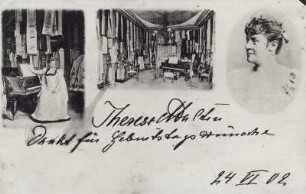 Therese Malten
Dankt für Geburtstagswünsche
24 VI 02